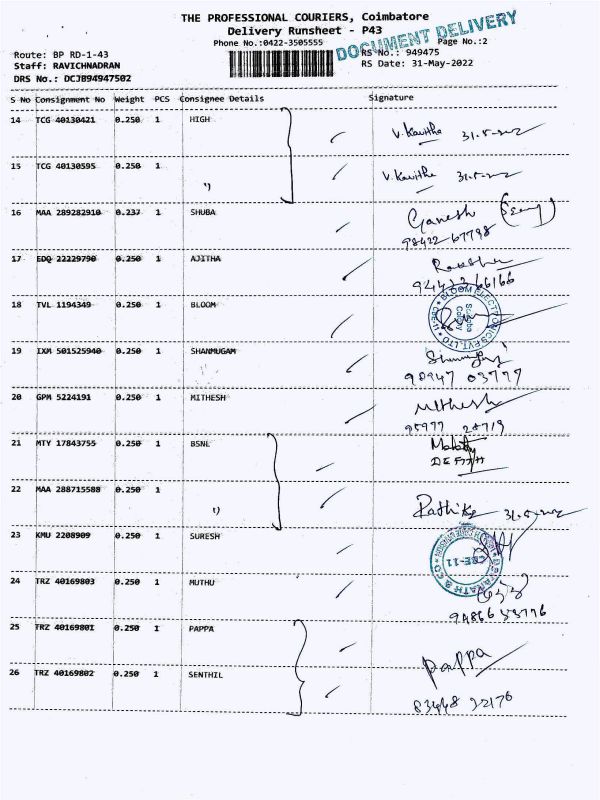 THE PROFESSIONAL COURIERS, Coimbatore
Delivery Runsheet - P43
Phone No.:0422-3505555
DOCUMENT DELIVERY
Page No.:2
Route: BP RD-1-43
RS No.: 949475
Staff: RAVICHNADRAN
RS Date: 31-May-2022
DRS No.: DCJB94947502
S No Consignment No Weight PCS Consignee Details Signature
14 TCG 40130421 0.250 1 HIGH V.Kavitha
15 TCG 40130595 0.250 1 V.Kavitha
16 MAA 289282910 0.237 1 SHUBA Ganesh
98422 67798
17 EDQ 22229790 0.250 1 AJITHA
18 TVL 1194349 0.250 1 BLOOM
BLOOM ELECTRONICS PVT. LTD
19 IXM 501525940 0.250 1 SHANMUGAM
90947 03777
20 GPM 5224191 0.250 1 MITHESH Mithesh
21 MTY 17843755 0.250 1 BSNL
22 MAA 288715588 0.250 1
23 KMU 2208909 0.250 1 SURESH
CBE-11
24 TRZ 40169803 0.250 1 MUTHU
25 TRZ 40169801 0.250 1 PAPPA Pappa
26 TRZ 40169802 0.250 1 SENTHIL